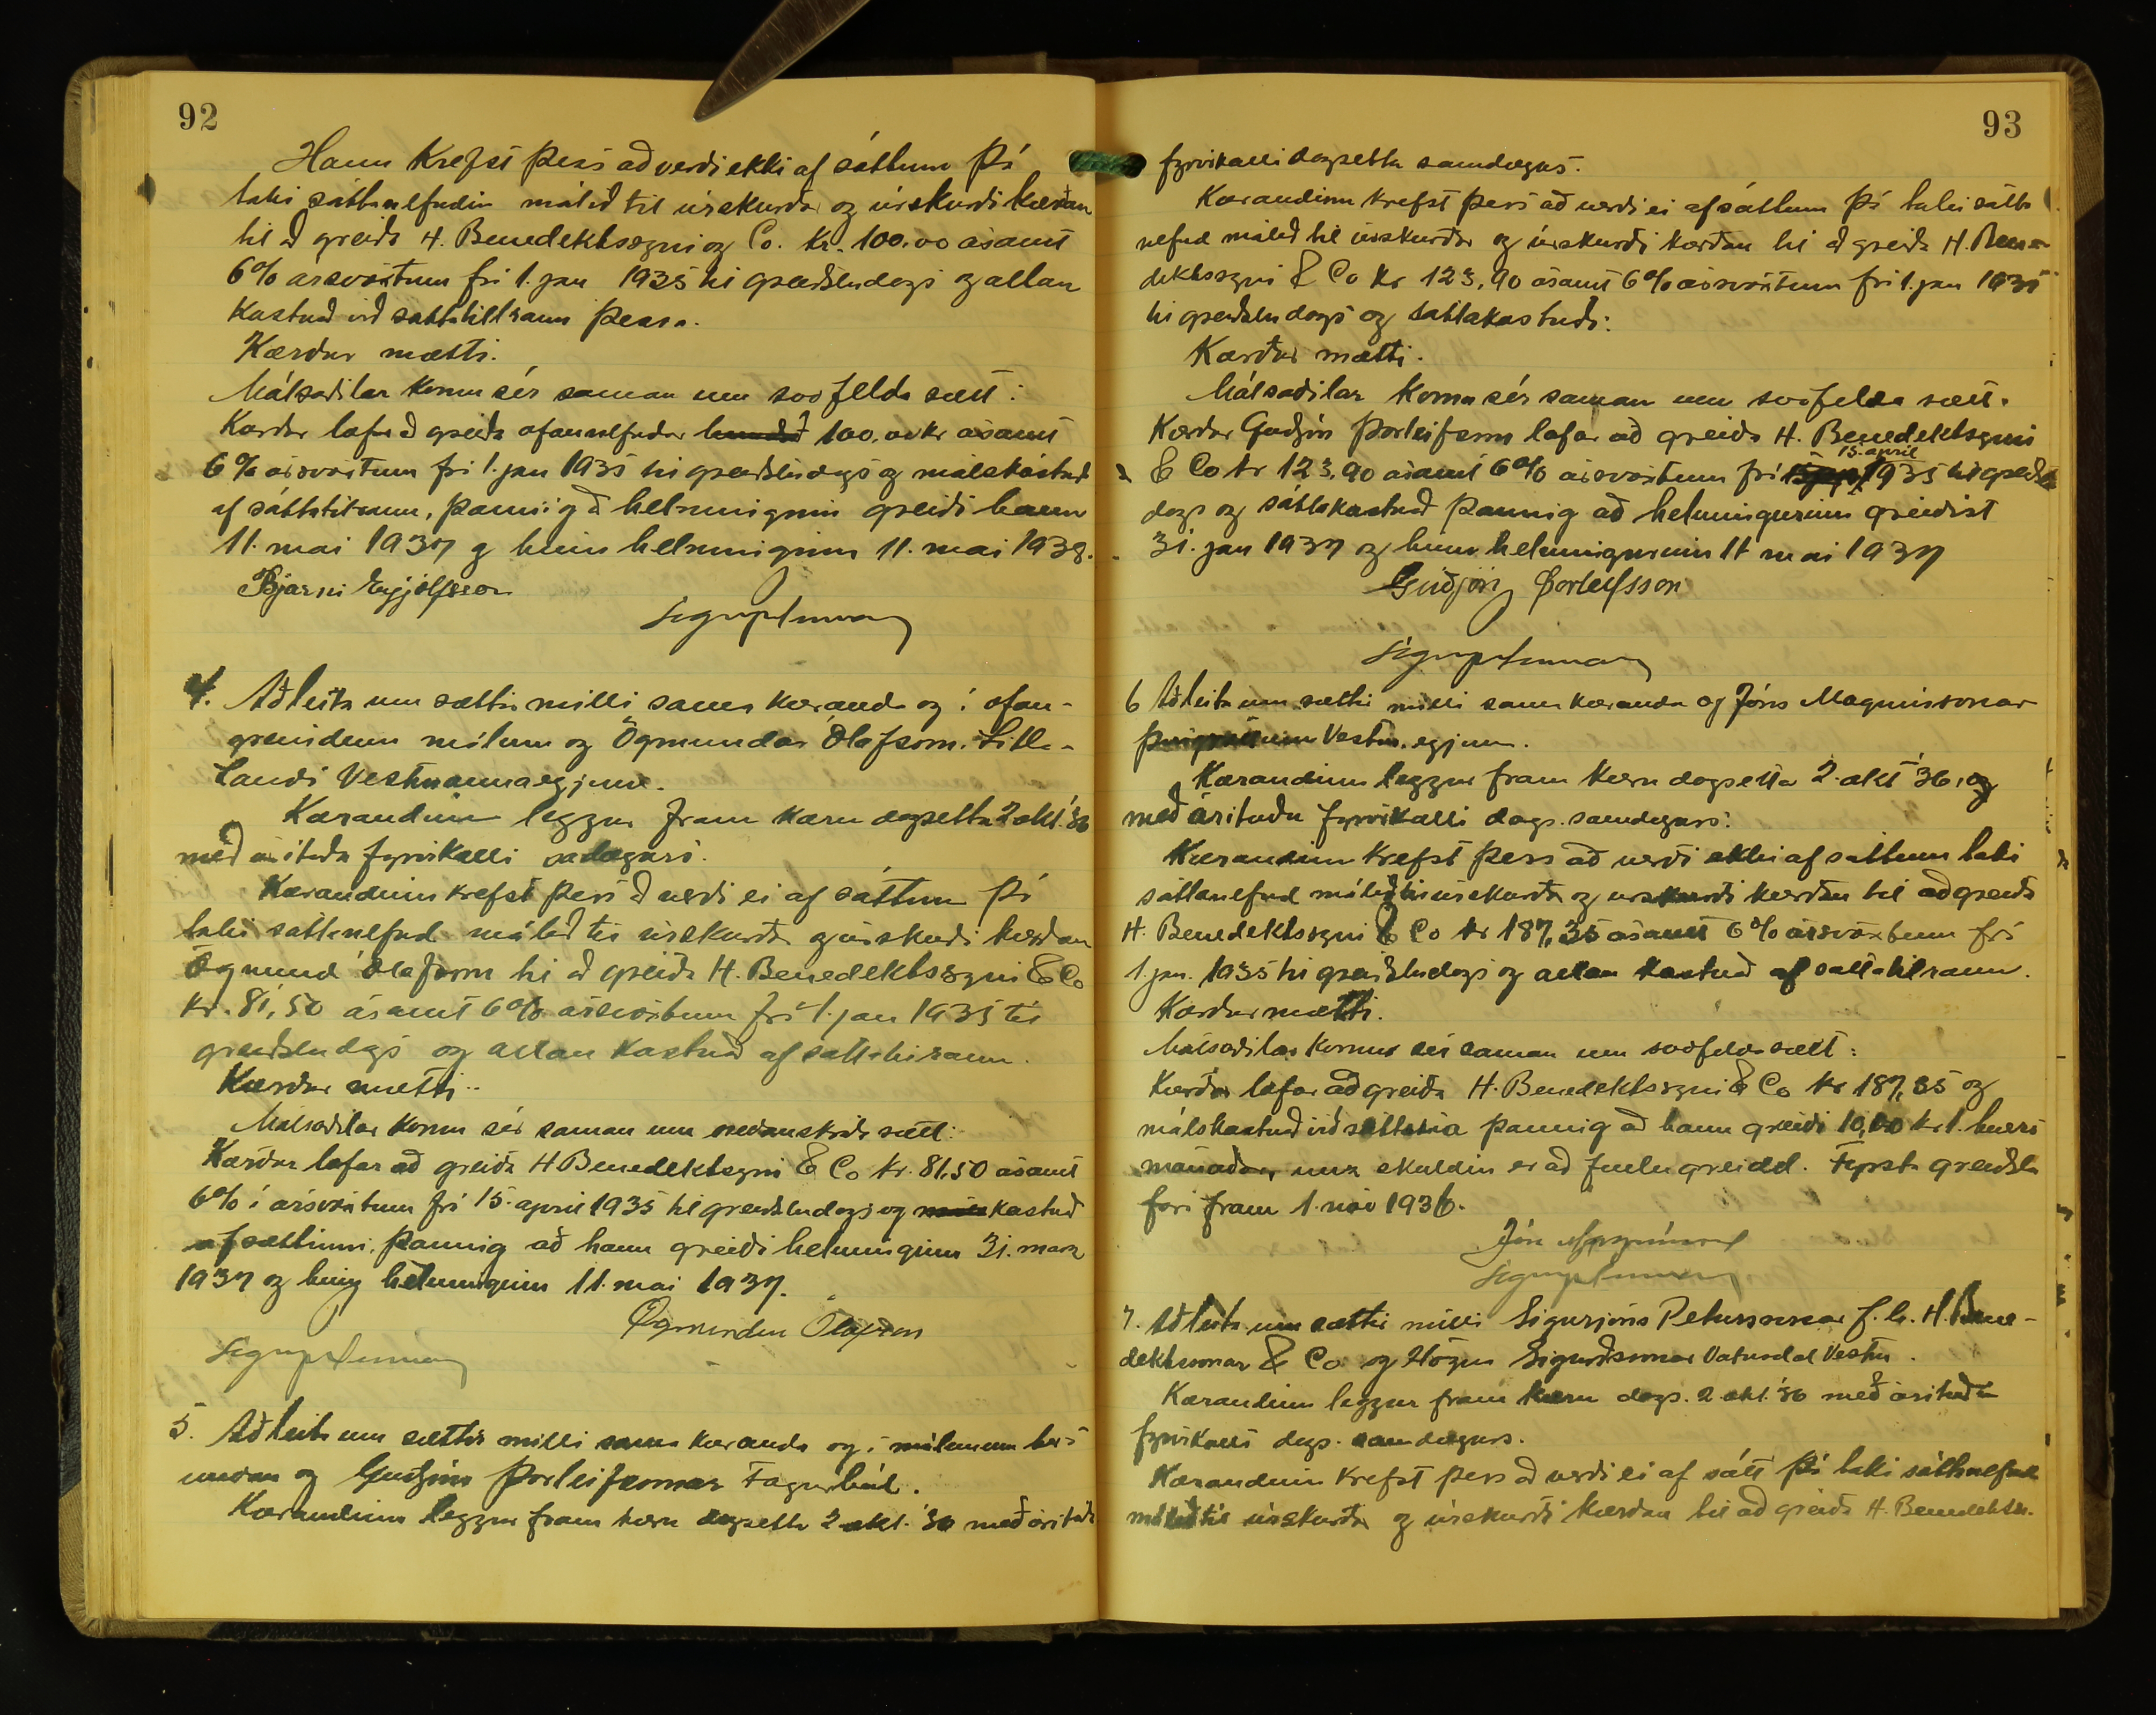 92
Hann krefst þess að verði ekki af sáttum þá
taki sáttanefndin málið til úrskurðar og úrskurði kærðan
til að greiða H. Benediktssyni og Co. kr. 100.00 ásamt
6% ársvöxtum frá 1. jan 1935 til greiðsludags og allan
kostnað við sáttatilraun þessa.
Kærður mætti.
Málsaðilar komu sér saman um svofellda sætt:
Kærður lofar að greiða ofannefndar 100.00 kr ásamt
6% ársvöxtum frá 1. jan 1935 til greiðsludags og málskostnað
af sáttatilraun, þannig að helminginn greiði hann
11. mai 1937 og hinn helminginn 11. mai 1938.
Bjarni Eyjólfsson
4. Að leita um sættir milli sama kæranda og í ofan-
greindum málum og Ögmundar Ólafssonar Litla-
landi Vestmannaeyjum.
Kærandinn leggur fram kæru dagsetta 2 okt. '36
með áritaðu fyrirkalli
Kærandinn krefst þess að verði ei af sáttum þá
taki sáttanefnd málið til úrskurðar og úrskurði kærðan
Ögmund Ólafsson til að greiða H. Benediktssyni & Co
kr. 81,50 ásamt 6% ársvöxtum frá 1. jan 1935 til
greiðsludags og allan kostnað af sáttatilraun.
Kærður mætti.
Málsaðilar komu sér saman um neðanskráða sætt:
Kærður lofar að greiða H Benediktssyni & Co kr. 81,50 ásamt
6% í ársvöxtum frá 15. april 1935 til greiðsludags og kostnað
af sættinni, þannig að hann greiði helminginn 31. mars
1937 og hinn helminginn 11. mai 1937.
Ögmundur Ólafsson
5. Að leita um sættir milli sama kæranda og í málunum hér á
undan og Guðjóns Þorleifssonar Fagurhól.
Kærandinn leggur fram kæru dagsetta 2 okt. '36 með áritaðu
93
fyrirkalli dagsettu samdægurs.
Kærandinn krefst þess að verði ei af sáttum þá taki sátta
nefnd málið til úrskurðar og úrskurði kærðan til að greiða H. Bene-
diktssyni & Co kr 123,90 ásamt 6% ársvöxtum frá 1. jan 1935
til greiðsludags og sáttakostnað.
Kærður mætti.
Málsaðilar komu sér saman um svofelda sætt.
Kærður Guðjón Þorleifsson lofar að greiða H. Benediktssyni
& Co kr 123,90 ásamt 6% ársvöxtum frá 15. april 1935 til greiðslu
dags og sáttakostnað þannig að helmingurinn greiðist
31. jan 1937 og hinn helmingurinn 11 mai 1937
Guðjón Þorleifsson
6 Að leita um sættir milli sama kæranda og Jóns Magnússonar
Vestm.eyjum.
Kærandinn leggur fram kæru dagsetta 2. okt '36, og
með árituðu fyrirkalli dags. samdægurs.
Kærandinn krefst þess að verði ekki af sáttum taki
sáttanefnd málið til úrskurðar og úrskurði kærðan til að greiða
H. Benediktssyni & Co kr 187,35 ásamt 6% ársvöxtum frá
1. jan. 1935 til greiðsludags og allan kostnað af sáttatilraun.
Kærður mætti.
Málsaðilar komu sér saman um svofelda sætt:
Kærður lofar að greiða H. Benediktssyni & Co kr 187,35 og
málskostnað við þannig að hann greiði 10,00 kr 1. hvers
mánaðar, unz skuldin er að fullu greidd. Fyrsta greiðsla
fari fram 1. nóv 1936.
Jón Magnússon
7. Að leita um sættir milli Sigurjóns Péturssonar f. h. H. Bene-
diktssonar & Co og Högna Sigurðssonar Vatnsdal Vestm.
Kærandinn leggur fram kæru dags. 2 okt. '36 með árituðu
fyrirkalli dags. samdægurs.
Kærandinn krefst þess að verði ei af sátt þá taki sáttanefnd
málið til úrskurðar og úrskurði kærðan til að greiða H. Benedikts.